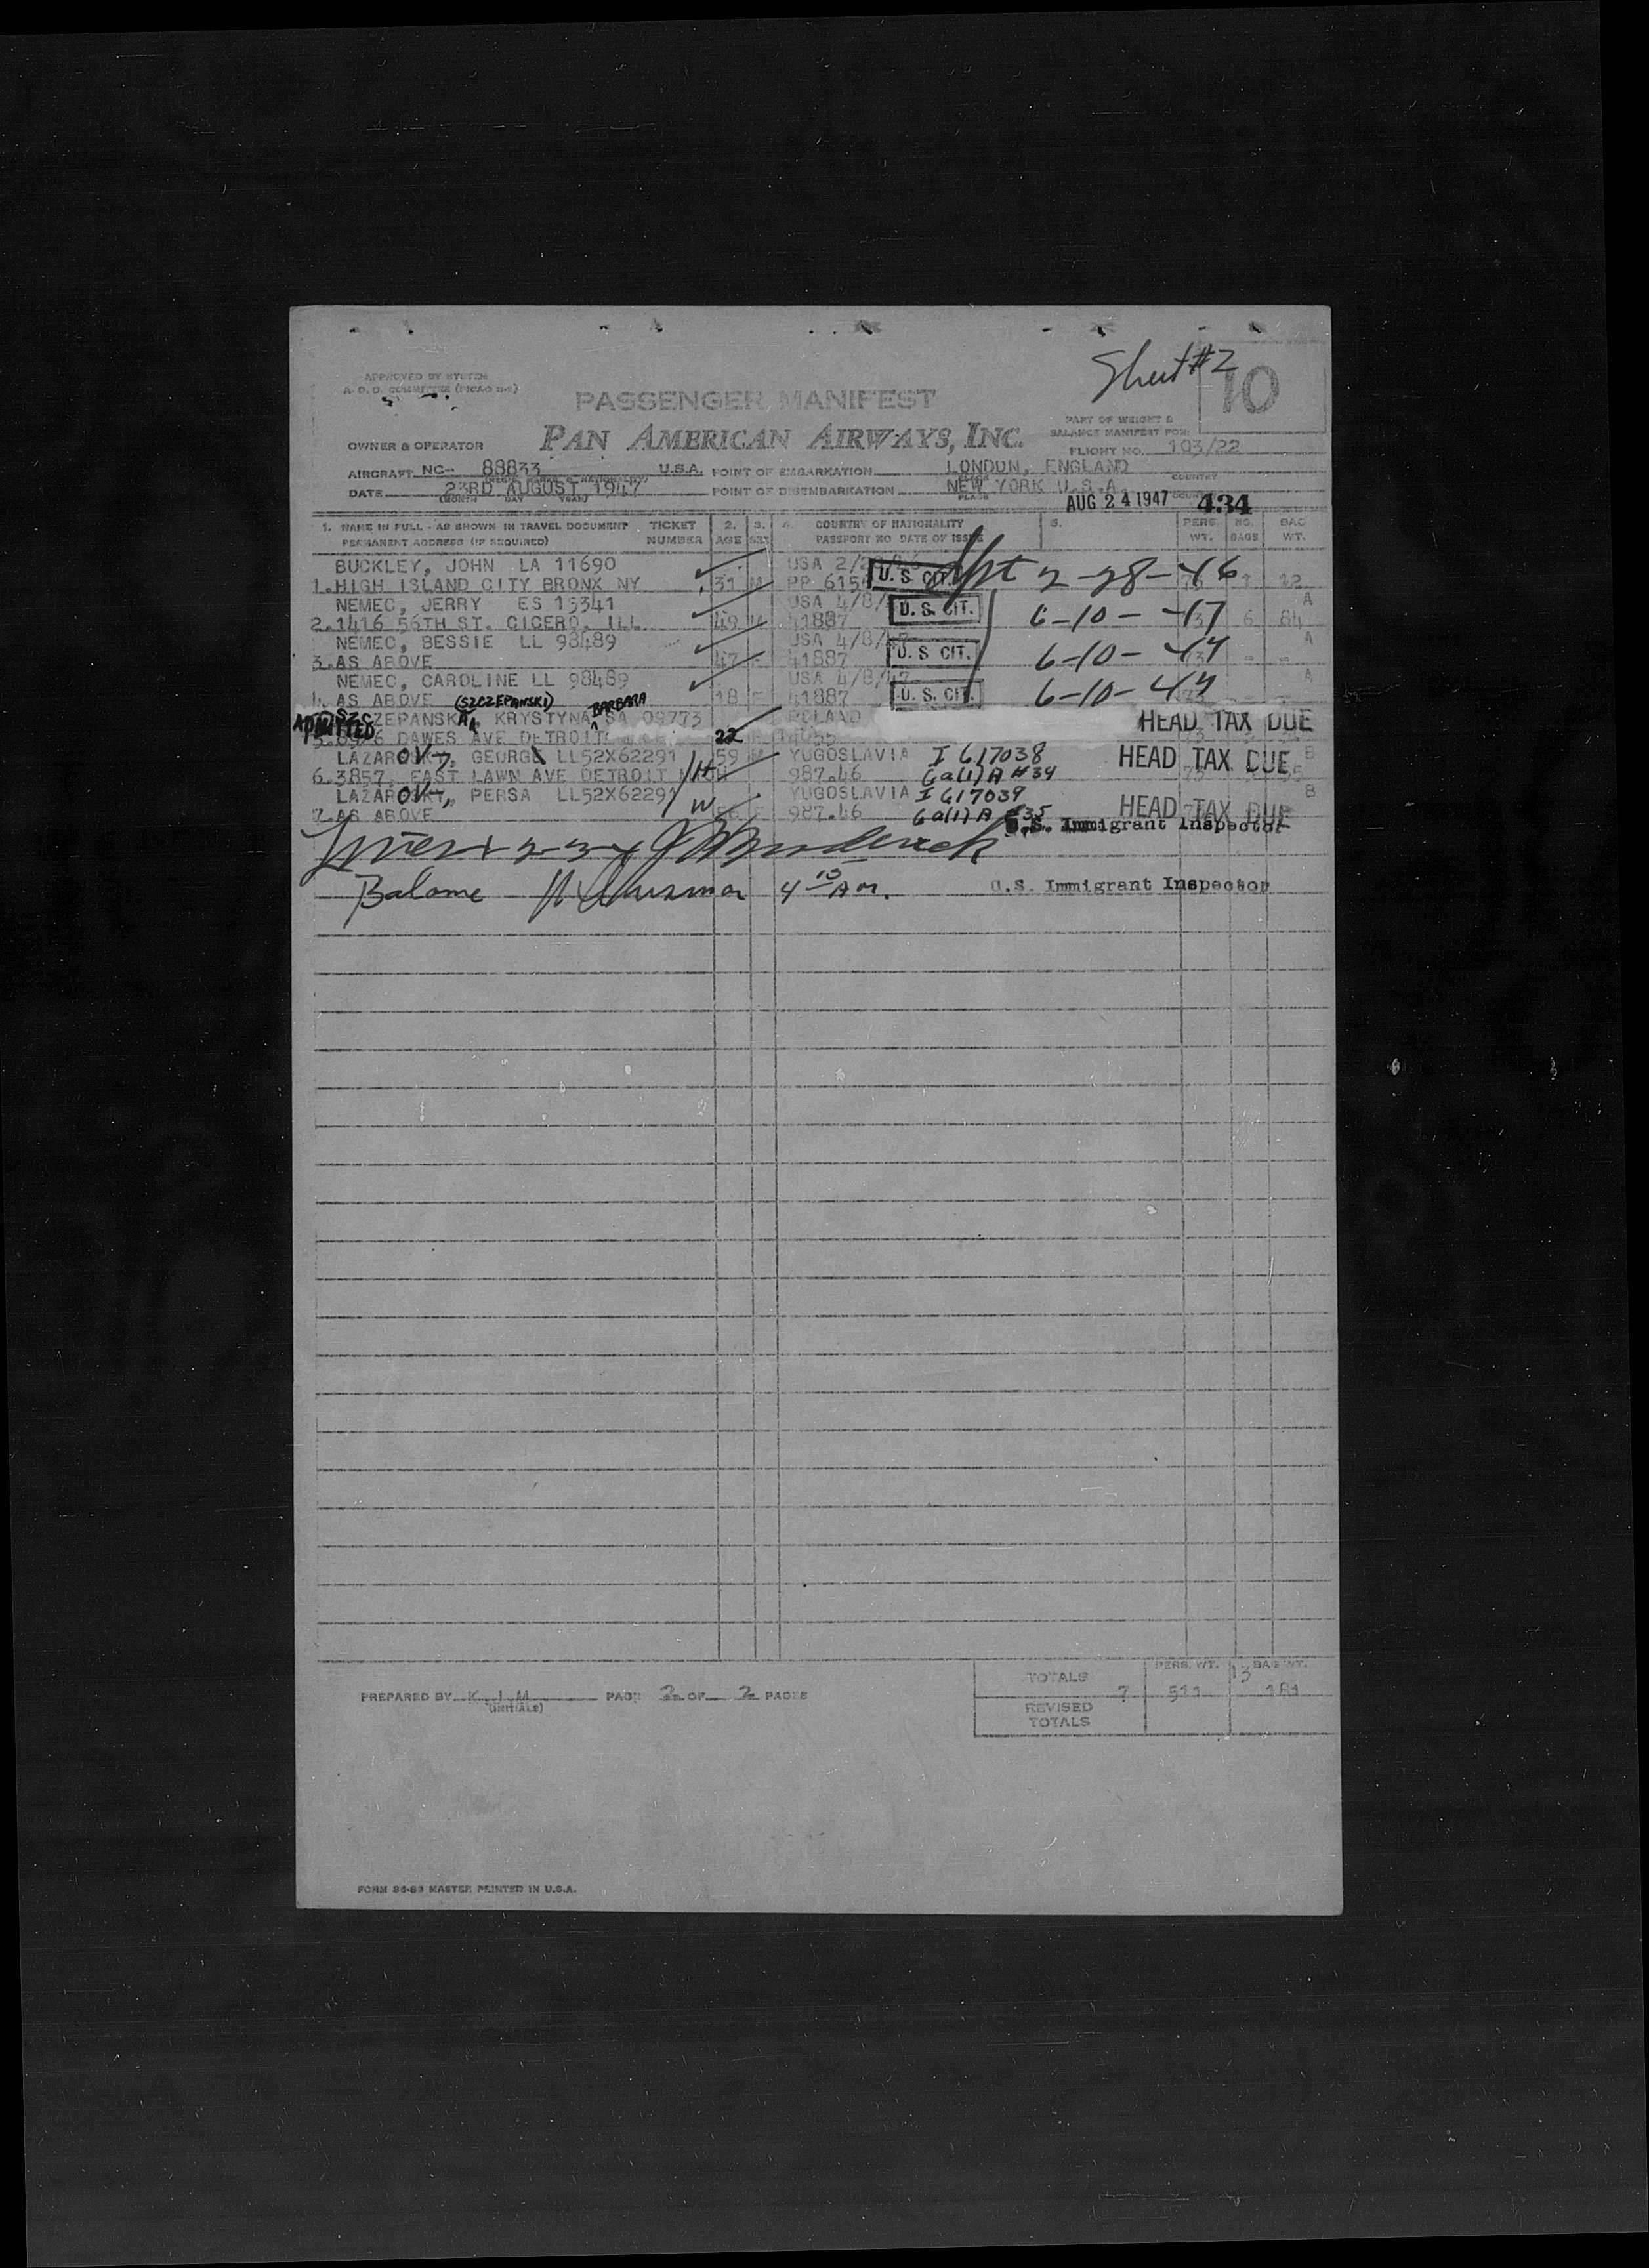 Sheet #2
APPROVED BY SYSTEM
A.O.O. COMMITTEE (PICAO B-2)
10
PASSENGER MANIFEST
PART OF WEIGHT &
BALANCE MANIFEST FOR
OWNER & OPERATOR PAN AMERICAN AIRWAYS, INC.
FLIGHT NO. 103/22
AIRCRAFT NC- 88833 U.S.A. POINT OF EMBARKATION LONDON, ENGLAND
COUNTRY
DATE 23RD AUGUST 1947 POINT OF DISEMBARKATION NEW YORK U.S.A.
(MONTH DAY YEAR) PLACE COUNTRY
AUG 24 1947 434
1. NAME IN FULL - AS SHOWN IN TRAVEL DOCUMENT TICKET 2. 3. 4. COUNTRY OF NATIONALITY 5. PERS. NO. BAG
PERMANENT ADDRESS (IF REQUIRED) NUMBER AGE SEX PASSPORT NO DATE OF ISSUE WT. BAGS WT.
BUCKLEY, JOHN LA 11690 USA
1. HIGH ISLAND CITY BRONX NY 31 M PP U.S. CIT. 2-28-46
NEMEC, JERRY ES 15341 USA 4/8/ A
2. 1416 56TH ST. CICERO, ILL 49 41887 U.S. CIT. 6-10-47 6 84
NEMEC, BESSIE LL 98489 USA 4/8/47 A
3. AS ABOVE 47 F 41887 U.S CIT. 6-10-47 - -
NEMEC, CAROLINE LL 98489 USA 4/8/47 A
4. AS ABOVE 18 F 41887 U.S. CIT. 6-10-47
(SZCZEPANSKI) BARBARA
ADMITTED SZCZEPANSKA, KRYSTYNA SA 09773 POLAND HEAD TAX DUE
5. DAWES AVE DETROIT 22
LAZAROV, GEORGE LL52X62291 59 M YUGOSLAVIA I 617038 HEAD TAX DUE B
6. 3857, EAST LAWN AVE DETROIT H 987.46 6a(1)A #34
LAZAROV, PERSA LL52X62291 YUGOSLAVIA I 617039 HEAD TAX DUE B
7. AS ABOVE W F 987.46 6a(1)A #35
U.S. Immigrant Inspector
Balance 4 15 AM. U.S. Immigrant Inspector
TOTALS 7 PERS. WT. 511 13 BAG WT. 181
PREPARED BY K.J.M. PAGE 2 OF 2 PAGES
(INITIALS)
REVISED
TOTALS
FORM 96-89 MASTER PRINTED IN U.S.A.